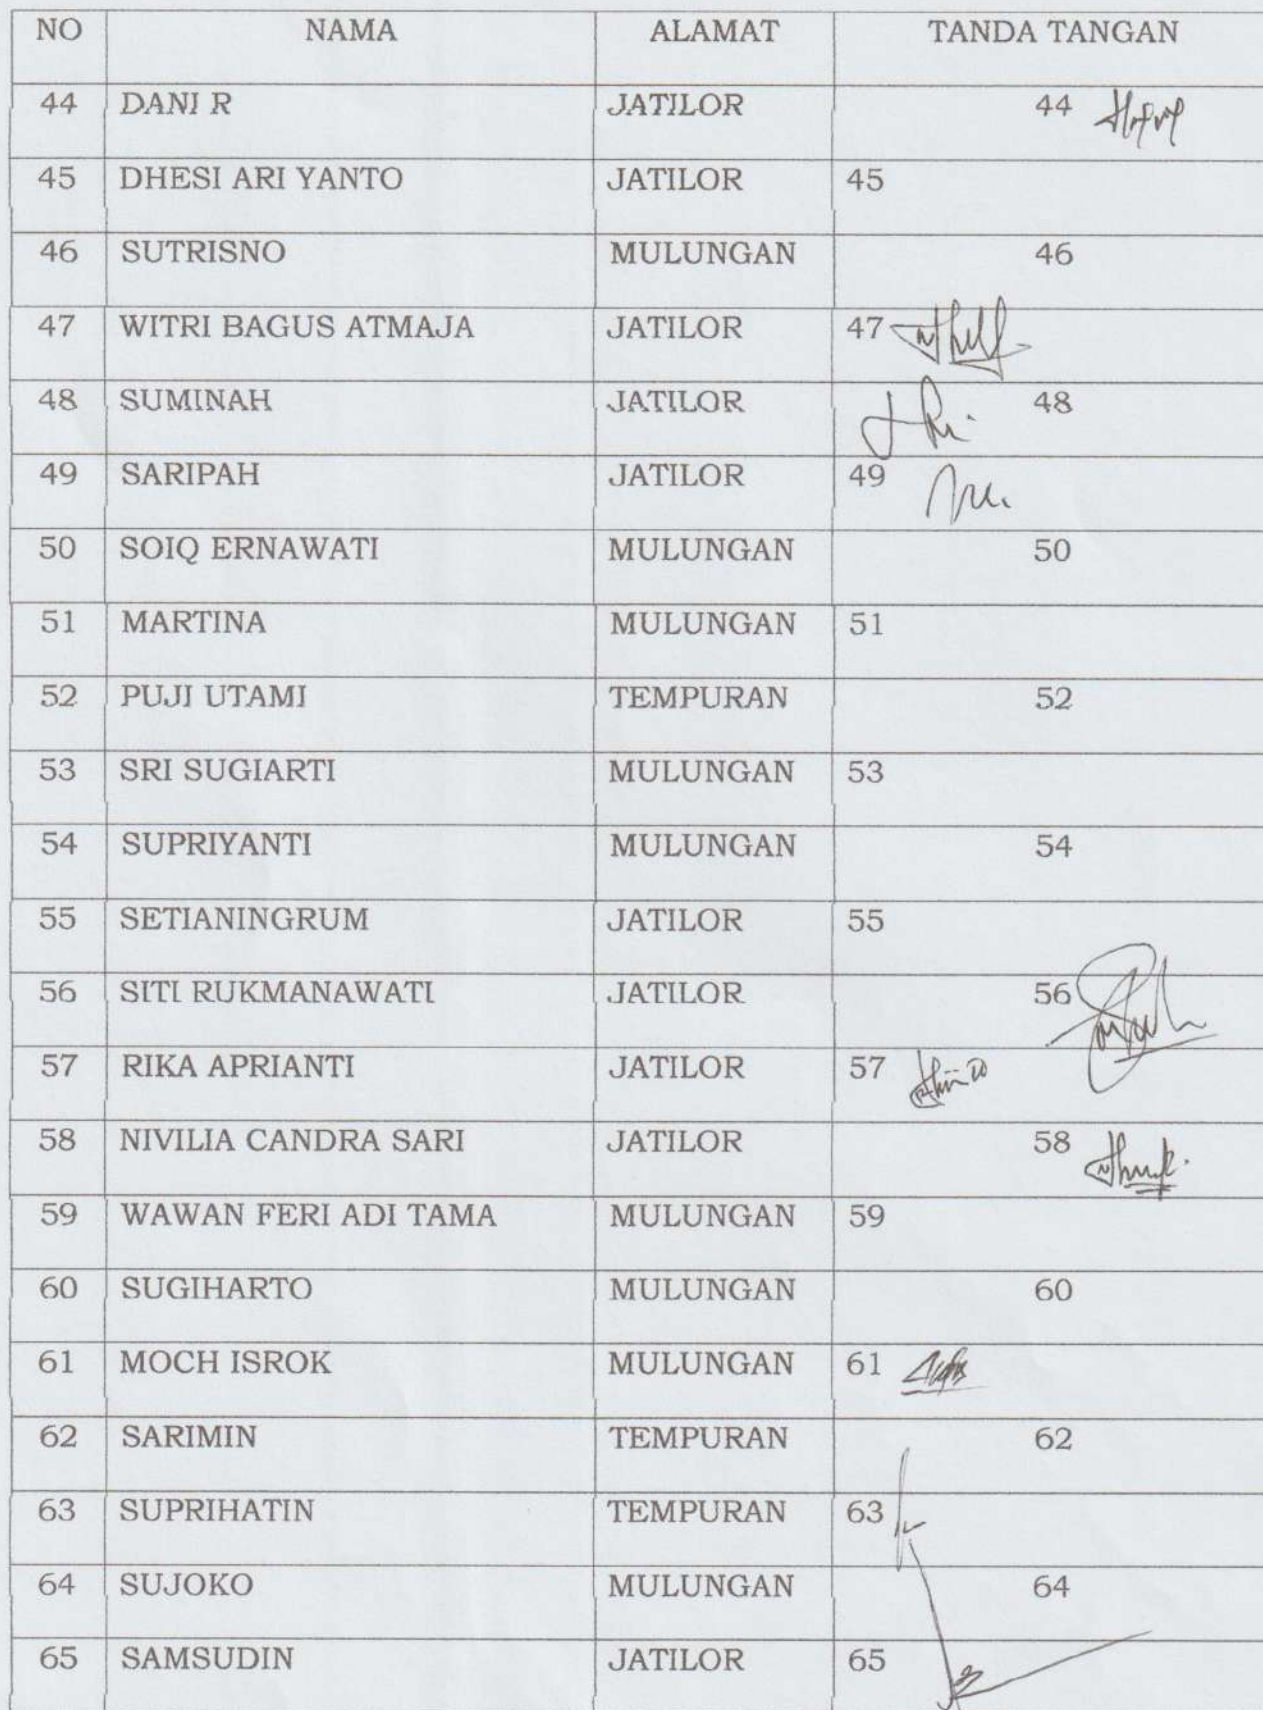 NO NAMA ALAMAT TANDA TANGAN
44 DANI R JATILOR 44
45 DHESI ARI YANTO JATILOR 45
46 SUTRISNO MULUNGAN 46
47 WITRI BAGUS ATMAJA JATILOR 47
48 SUMINAH JATILOR 48
49 SARIPAH JATILOR 49
50 SOIQ ERNAWATI MULUNGAN 50
51 MARTINA MULUNGAN 51
52 PUJI UTAMI TEMPURAN 52
53 SRI SUGIARTI MULUNGAN 53
54 SUPRIYANTI MULUNGAN 54
55 SETIANINGRUM JATILOR 55
56 SITI RUKMANAWATI JATILOR 56
57 RIKA APRIANTI JATILOR 57
58 NIVILIA CANDRA SARI JATILOR 58
59 WAWAN FERI ADI TAMA MULUNGAN 59
60 SUGIHARTO MULUNGAN 60
61 MOCH ISROK MULUNGAN 61
62 SARIMIN TEMPURAN 62
63 SUPRIHATIN TEMPURAN 63
64 SUJOKO MULUNGAN 64
65 SAMSUDIN JATILOR 65